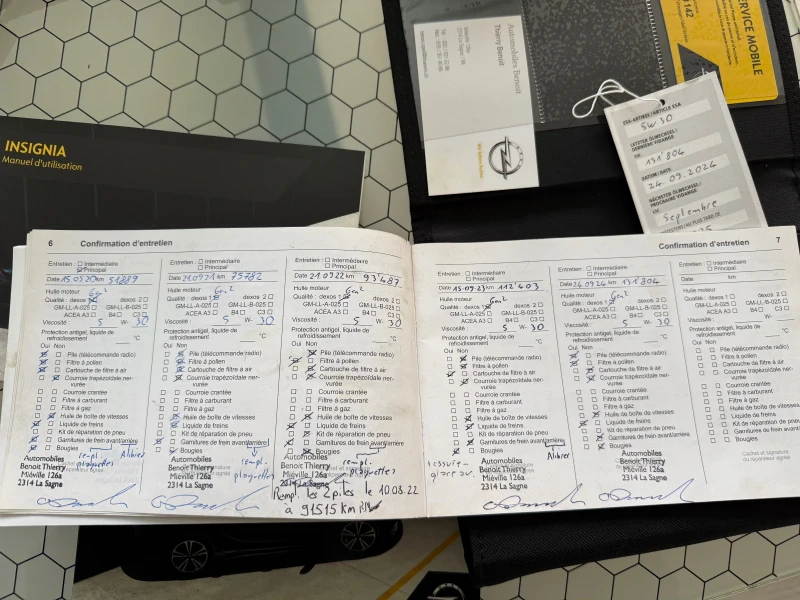 INSIGNIA
Manuel d'utilisation
Automobiles Benoit
Thierry Benoit
Miéville 126a
2314 La Sagne
SERVICE MOBILE
ESA-ARTIKEL/ARTICLE ESA
5W30
LETZTER ÖLWECHSEL:
DERNIÈRE VIDANGE
KM
131'804
DATUM/DATE:
24.09.2024
NÄCHSTER ÖLWECHSEL:
PROCHAINE VIDANGE
KM
Septembre
6 Confirmation d'entretien
Entretien : Intermédiaire
Principal
Date 15.05.20 km 51889
Huile moteur Gen2
Qualité : dexos 1 dexos 2
GM-LL-A-025 GM-LL-B-025
ACEA A3 B4 C3
Viscosité : 5 W- 30
Protection antigel, liquide de
refroidissement °C
Oui Non
Pile (télécommande radio)
Filtre à pollen
Cartouche de filtre à air
Courroie trapézoïdale ner-
vurée
Courroie crantée
Filtre à carburant
Filtre à gaz
Huile de boîte de vitesses
Liquide de freins
Kit de réparation de pneu
Garnitures de frein avant/arrière
Bougies
Automobiles
Benoit Thierry
Miéville 126a
2314 La Sagne
rempl.
plaquettes
Entretien : Intermédiaire
Principal
Date 21.09.21 km 75782
Huile moteur Gen2
Qualité : dexos 1 dexos 2
GM-LL-A-025 GM-LL-B-025
ACEA A3 B4 C3
Viscosité : 5 W- 30
Protection antigel, liquide de
refroidissement °C
Oui Non
Pile (télécommande radio)
Filtre à pollen
Cartouche de filtre à air
Courroie trapézoïdale ner-
vurée
Courroie crantée
Filtre à carburant
Filtre à gaz
Huile de boîte de vitesses
Liquide de freins
Kit de réparation de pneu
Garnitures de frein avant/arrière
Bougies
Automobiles
Benoit Thierry
Miéville 126a
2314 La Sagne
rempl.
plaquettes
Entretien : Intermédiaire
Principal
Date 21.09.22 km 93'487
Huile moteur Gen2
Qualité : dexos 1 dexos 2
GM-LL-A-025 GM-LL-B-025
ACEA A3 B4 C3
Viscosité : 5 W- 30
Protection antigel, liquide de
refroidissement °C
Oui Non
Pile (télécommande radio)
Filtre à pollen
Cartouche de filtre à air
Courroie trapézoïdale ner-
vurée
Courroie crantée
Filtre à carburant
Filtre à gaz
Huile de boîte de vitesses
Liquide de freins
Kit de réparation de pneu
Garnitures de frein avant/arrière
Bougies
Automobiles
Benoit Thierry
Miéville 126a
2314 La Sagne
rempl.
plaquettes
Rempl. les 2 piles le 10.08.22
à 91515 km
Confirmation d'entretien 7
Entretien : Intermédiaire
Principal
Date 15.09.23 km 112'403
Huile moteur Gen2
Qualité : dexos 1 dexos 2
GM-LL-A-025 GM-LL-B-025
ACEA A3 B4 C3
Viscosité : 5 W- 30
Protection antigel, liquide de
refroidissement °C
Oui Non
Pile (télécommande radio)
Filtre à pollen
Cartouche de filtre à air
Courroie trapézoïdale ner-
vurée
Courroie crantée
Filtre à carburant
Filtre à gaz
Huile de boîte de vitesses
Liquide de freins
Kit de réparation de pneu
Garnitures de frein avant/arrière
Bougies
Automobiles
Benoit Thierry
Miéville 126a
2314 La Sagne
Entretien : Intermédiaire
Principal
Date 24.09.24 km 131'804
Huile moteur Gen2
Qualité : dexos 1 dexos 2
GM-LL-A-025 GM-LL-B-025
ACEA A3 B4 C3
Viscosité : 5 W- 30
Protection antigel, liquide de
refroidissement °C
Oui Non
Pile (télécommande radio)
Filtre à pollen
Cartouche de filtre à air
Courroie trapézoïdale ner-
vurée
Courroie crantée
Filtre à carburant
Filtre à gaz
Huile de boîte de vitesses
Liquide de freins
Kit de réparation de pneu
Garnitures de frein avant/arrière
Bougies
Automobiles
Benoit Thierry
Miéville 126a
2314 La Sagne
Entretien : Intermédiaire
Principal
Date km
Huile moteur
Qualité : dexos 1 dexos 2
GM-LL-A-025 GM-LL-B-025
ACEA A3 B4 C3
Viscosité : W-
Protection antigel, liquide de
refroidissement °C
Oui Non
Pile (télécommande radio)
Filtre à pollen
Cartouche de filtre à air
Courroie trapézoïdale ner-
vurée
Courroie crantée
Filtre à carburant
Filtre à gaz
Huile de boîte de vitesses
Liquide de freins
Kit de réparation de pneu
Garnitures de frein avant/arrière
Bougies
Cachet et signature
du réparateur agréé